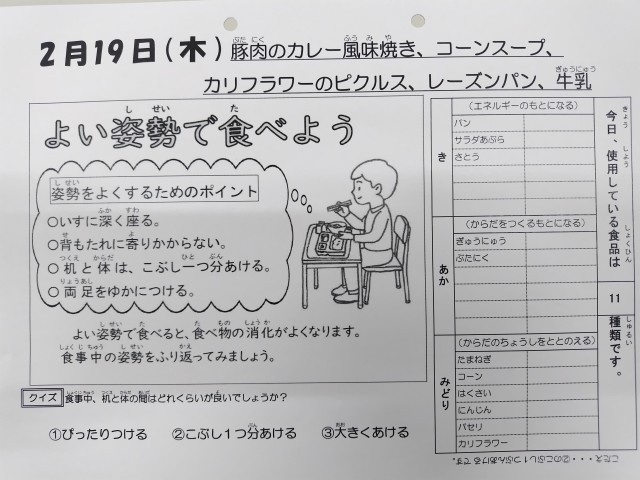 2月19日(木) 豚肉のカレー風味焼き、コーンスープ、
カリフラワーのピクルス、レーズンパン、牛乳
よい姿勢で食べよう
姿勢をよくするためのポイント
○いすに深く座る。
○背もたれに寄りかからない。
○机と体は、こぶし一つ分あける。
○両足をゆかにつける。
よい姿勢で食べると、食べ物の消化がよくなります。
食事中の姿勢をふり返ってみましょう。
クイズ 食事中、机と体の間はどれくらいが良いでしょうか?
①ぴったりつける ②こぶし1つ分あける ③大きくあける
今日、使用している食品は
11
種類です。
き
(エネルギーのもとになる)
パン
サラダあぶら
さとう
あか
(からだをつくるもとになる)
ぎゅうにゅう
ぶたにく
みどり
(からだのちょうしをととのえる)
たまねぎ
コーン
はくさい
にんじん
パセリ
カリフラワー
こたえ・・・②のこぶし1つぶんあけるです。